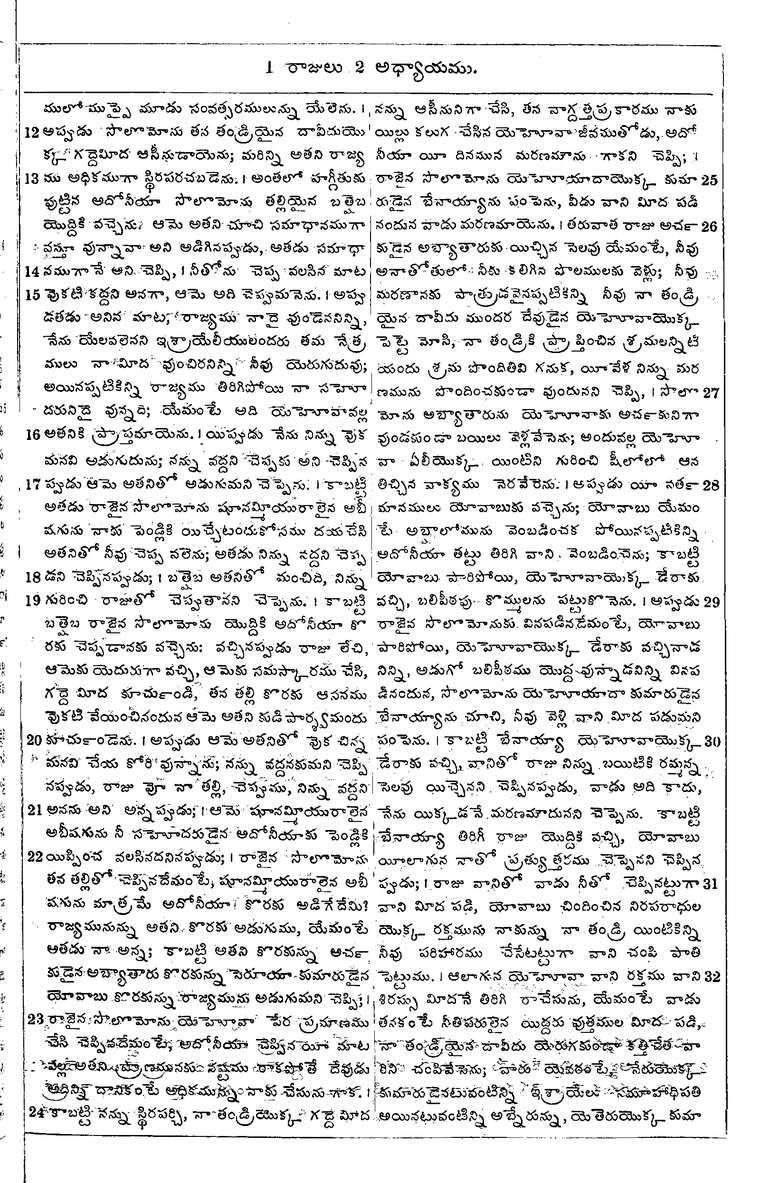 1 రాజులు 2 అధ్యాయము.
ములో ముప్పై మూడు సంవత్సరములున్ను యేలెను. ।
12 అప్పుడు సొలొమోను తన తండ్రియైన దావీదుయొ
క్క గద్దెమీద ఆసీనుడాయెను; మరిన్ని అతని రాజ్య
13 ము అధికముగా స్థిరపరచబడెను. । అంతలో హగ్గీతుకు
పుట్టిన అదోనీయా సొలొమోను తల్లియైన బత్షెబ
యొద్దికి వచ్చెను? ఆమె అతని చూచి సమాధానముగా
వస్తూ వున్నావా అని అడిగినప్పుడు, అతడు సమాధా
14 నముగానే అని చెప్పి, । నీతోను చెప్ప వలసిన మాట
15 వొకటి కద్దని అనగా, ఆమె అది చెప్పుమనెను. । అప్పు
డతడు అనిన మాట; రాజ్యము నాదై వుండెననిన్ని,
నేను యేలవలెనని ఇశ్రాయేలీయులందరు తమ నేత్ర
ములు నా మీద వుంచిరనిన్ని నీవు యెరుగుదువు;
అయినప్పటికిన్ని రాజ్యము తిరిగిపోయి నా సహో
దరునిదై వున్నది; యేమంటే అది యెహోవావల్ల
16 అతనికి ప్రాప్తమాయెను. । యిప్పుడు నేను నిన్ను వొక
మనవి అడుగుదును; నన్ను వద్దని చెప్పకు అని చెప్పిన
17 ప్పుడు ఆమె అతనితో అడుగుమని చెప్పెను. । కాబట్టి
అతడు రాజైన సొలొమోను షూనమ్మియురాలైన అబీ
షగును నాకు పెండ్లికి యిచ్చేటందుకోసము దయచేసి
అతనితో నీవు చెప్ప వలెను; అతడు నిన్ను వద్దని చెప్ప
18 డని చెప్పినప్పుడు; । బత్షెబ అతనితో మంచిది, నిన్ను
19 గురించి రాజుతో చెప్పుతానని చెప్పెను. । కాబట్టి
బత్షెబ రాజైన సొలొమోను యొద్దికి అదోనీయా కొ
రకు చెప్పడానకు వచ్చెను: వచ్చినప్పుడు రాజు లేచి,
ఆమెకు యెదురుగా వచ్చి, ఆమెకు నమస్కారము చేసి,
గద్దె మీద కూచుండి, తన తల్లి కొరకు ఆసనము
వొకటి వేయించినందున ఆమె అతని కుడి పార్శ్వమందు
20 కూచుండెను. । అప్పుడు ఆమె అతనితో వొక చిన్న
మనవి చేయ కోరి వున్నాను; నన్ను వద్దనకుమని చెప్పి
నప్పుడు, రాజు వో నా తల్లి, చెప్పుము, నిన్ను వద్దని
21 అనను అని అన్నప్పుడు; । ఆమె షూనమ్మియురాలైన
అబీషగును నీ సహోదరుడైన అదోనీయాకు పెండ్లికి
22 యిప్పించ వలసినదనినప్పుడు; । రాజైన సొలొమోను
తన తల్లితో చెప్పినదేమంటే, షూనమ్మియురాలైన అబీ
షగును మాత్రమే అదోనీయా కొరకు అడిగేదేమి?
రాజ్యమునున్ను అతని కొరకు అడుగుము, యేమంటే
అతడు నా అన్న; కాబట్టి అతని కొరకున్ను అర్చ
కుడైన అబ్యాతారు కొరకున్ను సెరూయా కుమారుడైన
యోవాబు కొరకున్ను రాజ్యమును అడుగుమని చెప్పి; ।
23 రాజైన సొలొమోను యెహోవా పేర ప్రమాణము
చేసి చెప్పినదేమంటే; అదోనీయా చెప్పిన యీ మాట
వల్ల అతని ప్రాణమునకు నష్టము రాకపోతే దేవుడు
ఆదిన్ని దానికంటే అధికమున్ను నాకు చేసును గాక. ।
24 కాబట్టి నన్ను స్థిరపర్చి, నా తండ్రియొక్క గద్దె మీద
నన్ను ఆసీనునిగా చేసి, తన వాగ్దత్తప్రకారము నాకు
యిల్లు కలుగ చేసిన యెహోవా జీవముతోడు, అదో
నీయా యీ దినమున మరణమౌను గాకని చెప్పి; ।
రాజైన సొలొమోను యెహోయాదాయొక్క కుమా 25
రుడైన బేనాయ్యాను పంపెను, వీడు వాని మీద పడి
నందున వాడు మరణమాయెను. । తరువాత రాజు అర్చ 26
కుడైన అబ్యాతారుకు యిచ్చిన సెలవు యేమంటే, నీవు
అనాతోతులో నీకు కలిగిన పొలములకు వెళ్లు; నీవు
మరణానకు పాత్రుడవైనప్పటికిన్ని నీవు నా తండ్రి
యైన దావీదు ముందర దేవుడైన యెహోవాయొక్క
పెట్టె మోసి, నా తండ్రికి ప్రాప్తించిన శ్రమలన్నిటి
యందు శ్రమ పొందితివి గనుక, యీవేళ నిన్ను మర
ణమును పొందించకుండా వుందునని చెప్పి, । సొలొ 27
మోను అబ్యాతారును యెహోవాకు అర్చకునిగా
వుండకుండా బయిలు వెళ్లవేసెను; అందువల్ల యెహో
వా ఏలీయొక్క యింటిని గురించి షీలోలో ఆన
తిచ్చిన వాక్యము నెరవేరెను. । అప్పుడు యీ వర్త 28
మానములు యోవాబుకు వచ్చెను; యోవాబు యేమం
టే అబ్షాలోమును వెంబడించక పోయినప్పటికిన్ని
అదోనీయా తట్టు తిరిగి వాని వెంబడించెను; కాబట్టి
యోవాబు పారిపోయి, యెహోవాయొక్క డేరాకు
వచ్చి, బలిపీఠపు కొమ్ములను పట్టుకొనెను. । అప్పుడు 29
రాజైన సొలొమోనుకు వినపడినదేమంటే, యోవాబు
పారిపోయి, యెహోవాయొక్క డేరాకు వచ్చినాడ
నిన్ని, అడుగో బలిపీఠము యొద్ద వున్నాడనిన్ని వినప
డినందున, సొలొమోను యెహోయాదా కుమారుడైన
బేనాయ్యాను చూచి, నీవు వెళ్లి వాని మీద పడుమని
పంపెను. । కాబట్టి బేనాయ్యా యెహోవాయొక్క 30
డేరాకు వచ్చి, వానితో రాజు నిన్ను బయిటికి రమ్మన్న
సెలవు యిచ్చెనని చెప్పినప్పుడు, వాడు అది కాదు,
నేను యిక్కడనే మరణమౌదునని చెప్పెను. కాబట్టి
బేనాయ్యా తిరిగీ రాజు యొద్దికి వచ్చి, యోవాబు
యీలాగున నాతో ప్రత్యుత్తరము చెప్పెనని చెప్పిన
ప్పుడు; । రాజు వానితో వాడు నీతో చెప్పినట్టుగా 31
వాని మీద పడి, యోవాబు చిందించిన నిరపరాధుల
యొక్క రక్తమును నాకున్ను నా తండ్రి యింటికిన్ని
నీవు పరిహారము చేసేటట్టుగా వాని చంపి పాతి
పెట్టుము. । ఆలాగున యెహోవా వాని రక్తము వాని 32
శిరస్సు మీదనే తిరిగి రాచేసును, యేమంటే వాడు
తనకంటే నీతిపరులైన యిద్దరు వుత్తముల మీద పడి,
నా తండ్రియైన దావీదు యెరుగకుండా కత్తిచేత వా
రిని చంపివేసెను; వారు యెవరంటే, నేరుయొక్క
కుమారుడైనటువంటిన్ని ఇశ్రాయేలు సమూహాధిపతి
అయినటువంటిన్ని అబ్నేరున్ను, యెతెరుయొక్క కుమా